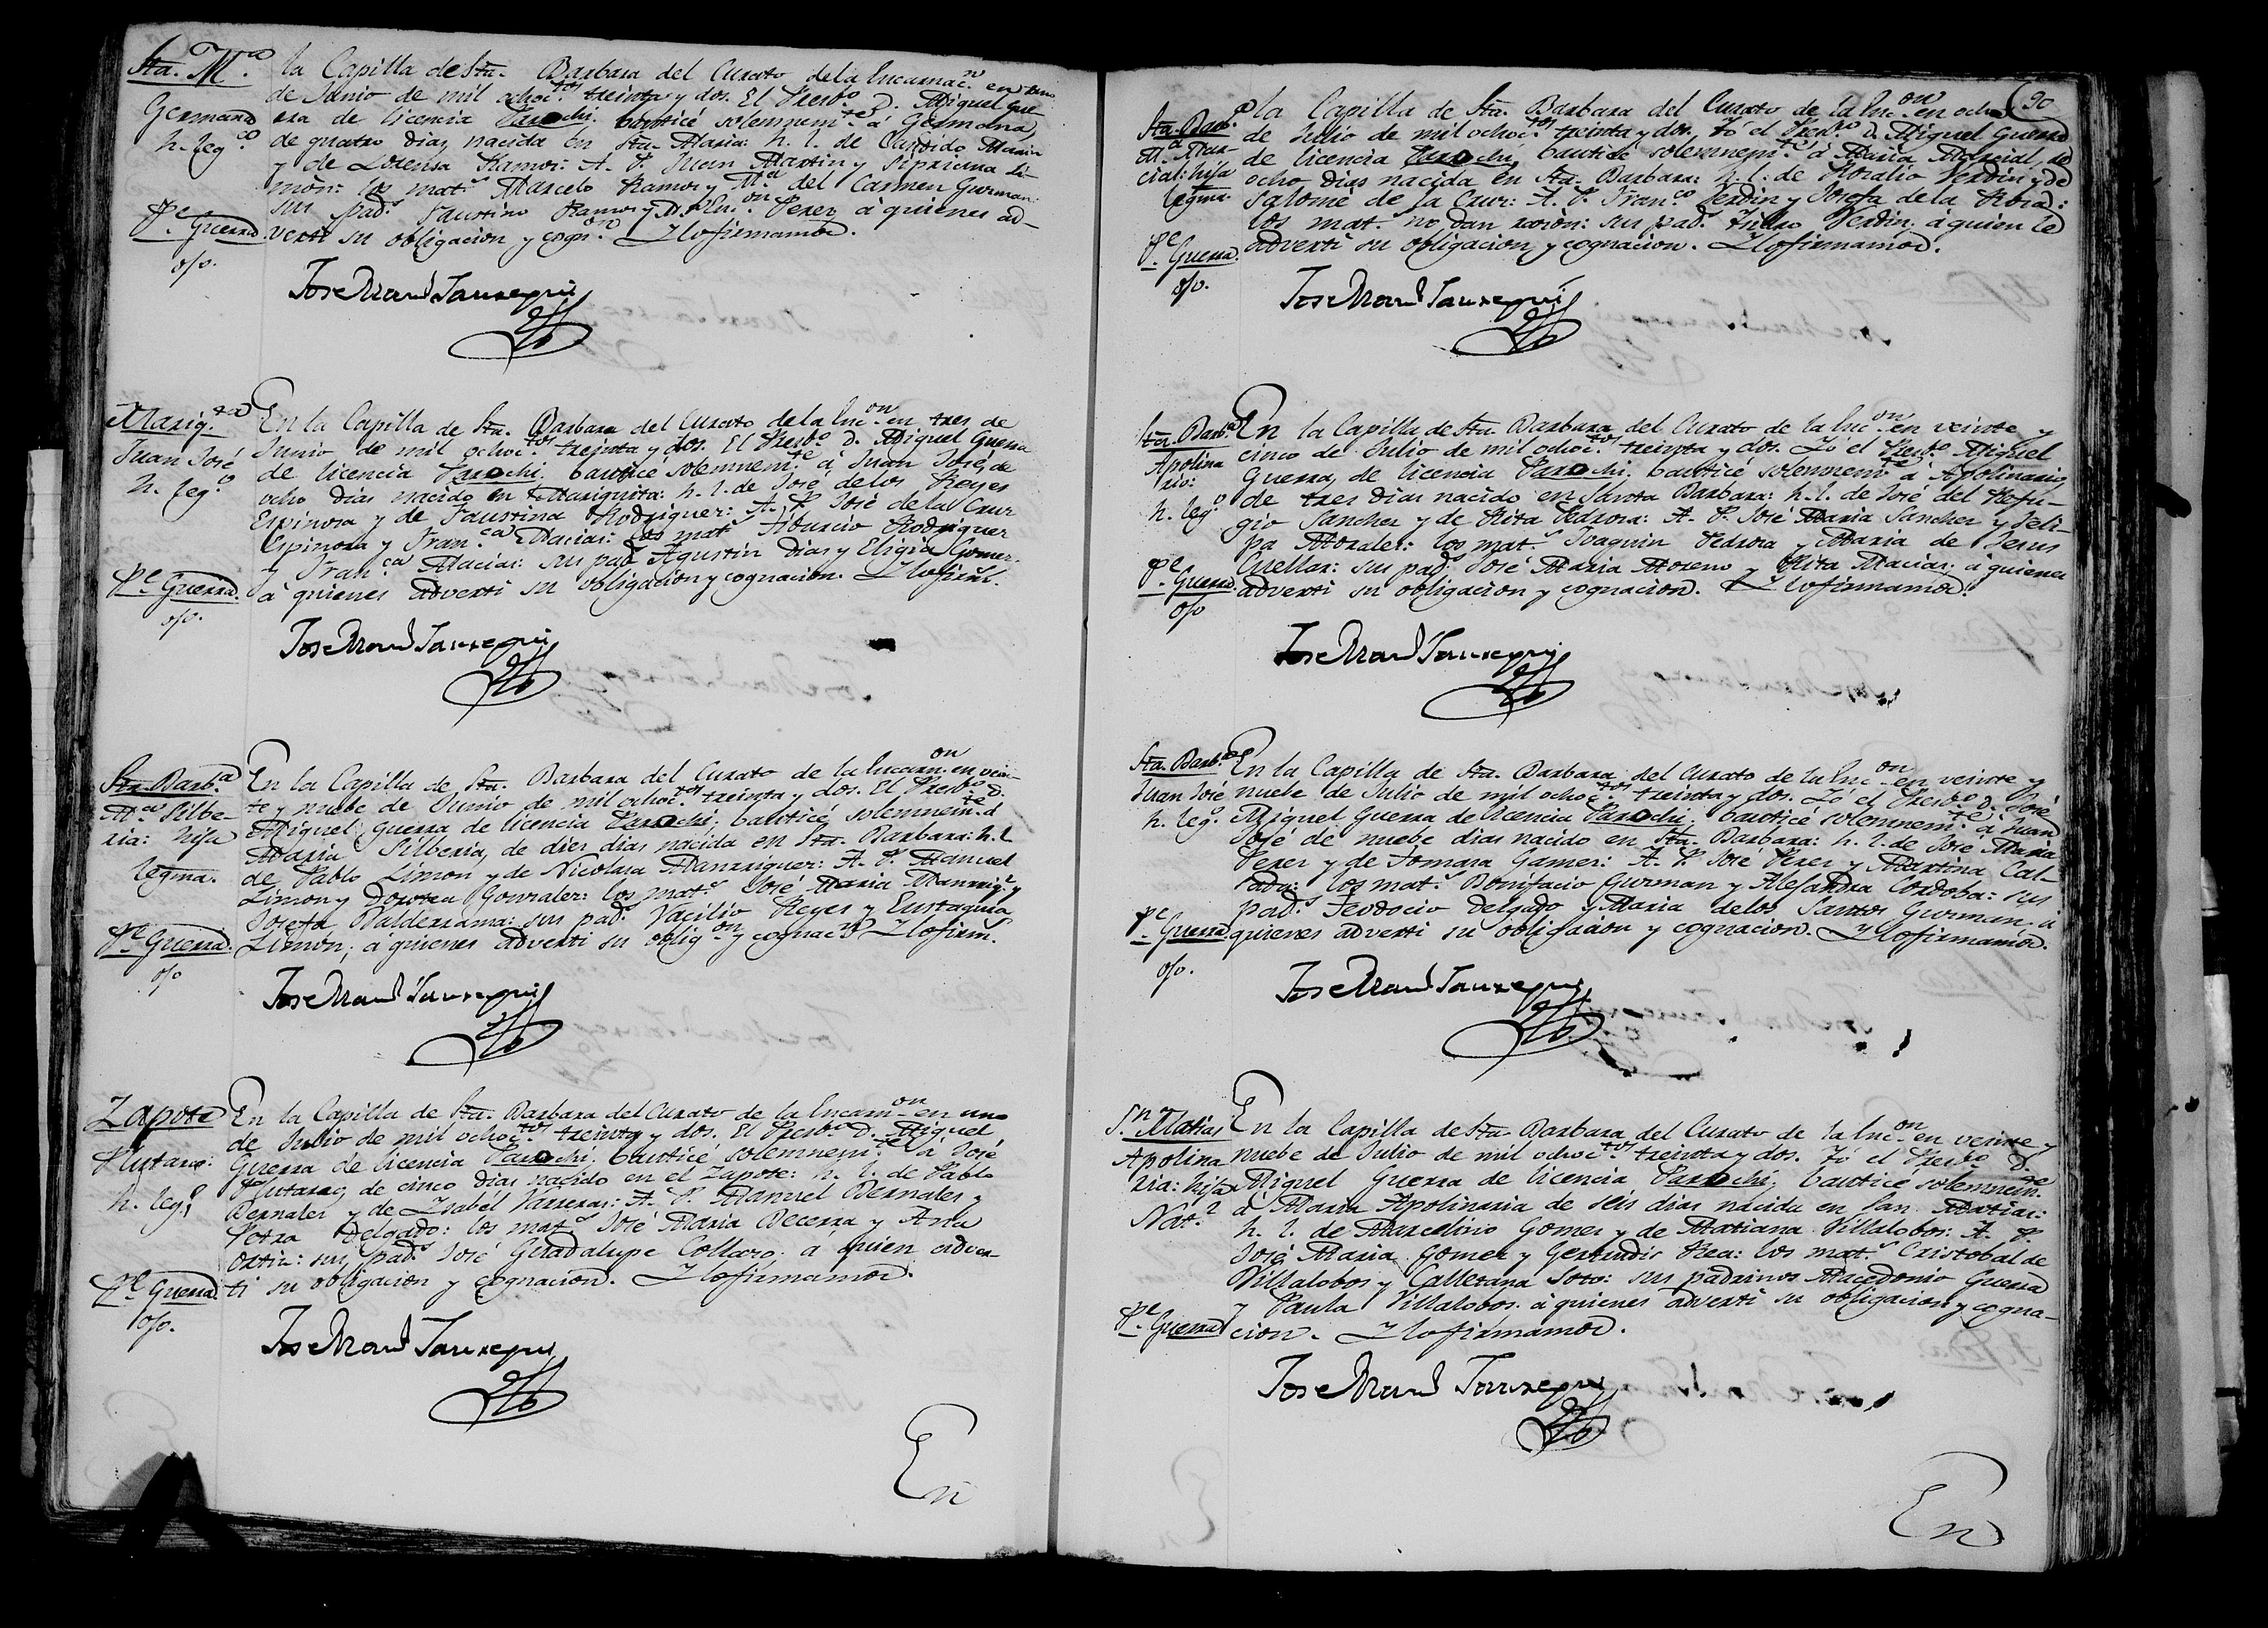 Sta. M.ª
Germana
h. leg.ª
P.e Guerra
o/o.
la Capilla de Sta. Barbara del Curato de la Encarnac.n en
de Junio de mil ochoc.tos treinta y dos. El Presb.o D. Miguel Gue-
rra de licencia Parochi. bauticé solemnem.te á Germana,
de quatro dias, nacida en Sta. Maria: h. l. de Candido Marin
y de Lorensa Ramos: A. P. Juan Martin y Sipriana Li-
mon: los mat.s Marcelo Ramos y M.a del Carmen Gusman:
sus pad.s Faustino Ramos y Perez á quienes ad-
verti su obligacion y cogn.on Y lo firmamos.
Jose Man.l Jauregui
Mariq.ta
Juan José
h. leg.o
P.e Guerra.
o/o.
En la Capilla de Sta. Barbara del Curato de la Inc.on en tres de
Junio de mil ochoc.tos treinta y dos. El Presb.o D. Miguel Guerra
de licencia Parochi. bauticé solemnem.te á Juan José, de
ocho dias nacido en Mariquita: h. l. de José de los Reyes
Espinosa y de Faustina Rodriguez: A. P. José de la Cruz
Espinoza y Fran.ca Macias: los mat.s Tiburcio Rodriguez
y Fran.ca Macias: sus pad.s Agustin Dias y Eligia Gomez
á quienes adverti su obligacion y cognacion. Y lo firm.
Jose Man.l Jauregui
Sta. Barb.a
M.a Silbe-
ria: hija
legma.
P.e Guerra.
o/o
En la Capilla de Sta. Barbara del Curato de la Encarn.on en vein-
te y nuebe de Junio de mil ochoc.tos treinta y dos. El Presb.o D.
Miguel Guerra de licencia Parochi. bauticé solemnem.te á
Maria Silberia, de diez dias nacida en Sta. Barbara: h. l.
de Pablo Limon y de Nicolasa Manrriquez: A. P. Manuel
Limon y Dorotea Gonzalez: los mat.s José Maria Manrriq.z y
Josefa Balderrama: sus pad.s Vacilio Reyes y Eustaquia
Limón; á quienes adverti su oblig.on y cognac.n Y lo firm.
Jose Man.l Jauregui
Zapote
Plutarco:
h. leg.o
P.e Guerra.
o/o.
En la Capilla de Sta. Barbara del Curato de la Encarn.on en uno
de Julio de mil ochoc.tos treinta y dos. El Presb.o D. Miguel
Guerra de licencia Parochi. bauticé solemnem.te á José
Plutarco, de cinco dias nacido en el Zapote: h. l. de Pablo
Bernales y de Isabél Varreras: A. P. Manuel Bernales y
Petra Delgado: los mat.s José Maria Becerra y Ana
Ortiz: sus pad.s José Guadalupe Collazo. á quien adver-
ti su obligacion y cognacion. Y lo firmamos.
Jose Man.l Jauregui
En
90
Sta. Barb.a
M.a Mar-
cial: hija
legma.
P.e Guerra.
o/o.
la Capilla de Sta. Barbara del Curato de la Inc.on en ocho
de Julio de mil ochoc.tos treinta y dos, Yó el Presb.o D. Miguel Guerra
de licencia Parochi, bauticé solemnem.te á Maria Marcial, de
ocho dias nacida en Sta. Barbara: h. l. de Rosalio Verdin y de
Salome de la Cruz: A. P. Fran.co Verdin y Josefa de la Rosa:
los mat.s no dan razón: sus pad.s Verdin, á quien le
adverti su obligacion, y cognacion. Y lo firmamos.
Jose Man.l Jauregui
Sta. Barb.a
Apolina
rio:
h. leg.o
P.e Guerra.
o/o
En la Capilla de Sta. Barbara del Curato de la Inc.on en veinte y
cinco de Julio de mil ochoc.tos treinta y dos. Yó el Presb.o Miguel
Guerra, de licencia Parochi. bauticé solemnem.te á Apolinario,
de tres dias nacido en Santa Barbara: h. l. de José del Refu-
gio Sanchez y de Rita Pedroza: A. P. José Maria Sanchez y Feli-
pa Morales: los mat.s Joaquin Pedroza y Maria de Jesus
Cuellar: sus pad.s José Maria Moreno y Rita Macias: á quienes
adverti su obligacion y cognacion. Y lo firmamos.
Jose Man.l Jauregui
Sta. Barb.a
Juan José
h. leg.o
P.e Guerra.
o/o.
En la Capilla de Sta. Barbara del Curato de la Inc.on en veinte y
nuebe de Julio de mil ochoc.tos treinta y dos. Yó el Presb.o D. José
Miguel Guerra de licencia Parochi. bauticé solemnem.te á Juan
José de nuebe dias nacido en Sta. Barbara: h. l. de José Maria
Perez y de Tomasa Gamez: A. P. José Perez y Martina Cal-
sada: los mat.s Bonifacio Gusman y Alejandra Cordoba: sus
pad.s Teodocio Delgado y Maria de los Santos Gusman, á
quienes adverti su obligacion y cognacion. Y lo firmamos.
Jose Man.l Jauregui
S.n Matias
Apolina
ria: hija
Nat.l
P.e Guerra
En la Capilla de Sta. Barbara del Curato de la Inc.on en veinte y
nuebe de Julio de mil ochoc.tos treinta y dos. Yó el Presb.o D.
Miguel Guerra de licencia Parochi, bauticé solemnem.te
á Maria Apolinaria de seis dias nacida en San Matias:
h. l. de Marcelino Gomez y de Matiana Villalobos: A. P.
José Maria Gomez y Gertrudis Rea: los mat.s Cristobal de
Villalobos y Calletana Soto: sus padrinos Macedonio Guerra
y Paula Villalobos. á quienes adverti su obligacion y cogna-
cion. Y lo firmamos.
Jose Man.l Jauregui
En